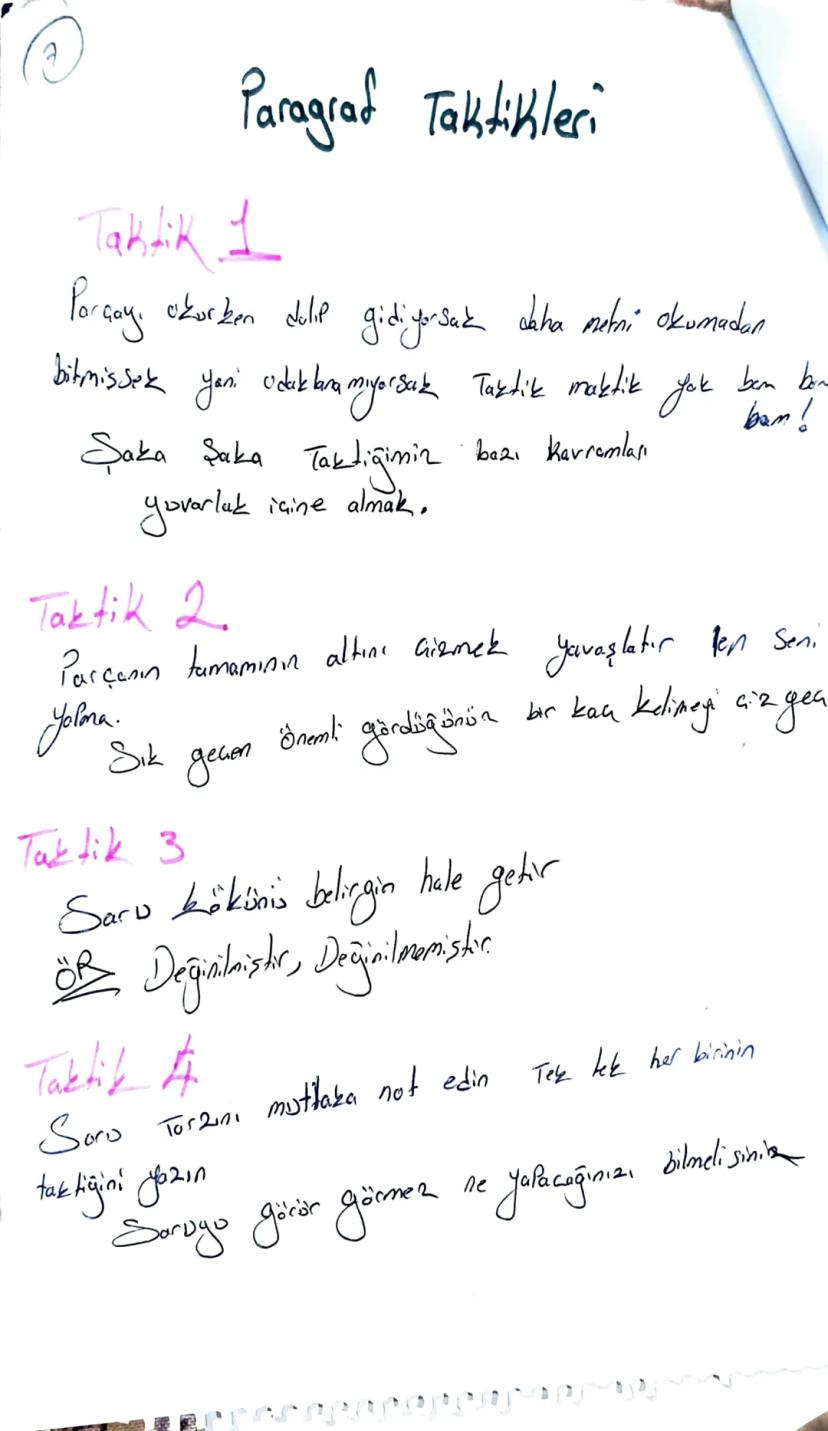 7
Paragraf Taktikleri
Taktik 1
Parçayı okurken dalıp gidiyorsak daha metni okumadan
bitmissek yani odaklanamıyorsak Taktik maktik yok bam bam
bam!
Şaka Şaka Taktiğimiz bazı kavramları
yuvarlak içine almak.
Taktik 2
Parçanın tamamının altını çizmek yavaşlatır len seni
Yapma.
Sık geçen önemli gördüğünüz bir kaç kelimeyi çiz geç
Taktik 3
Soru kökünü belirgin hale getir
ÖR Değinilmiştir, Değinilmemiştir.
Taktik 4
Soru Tarzını mutlaka not edin Tek tek her birinin
taktiğini yazın
Soruyu görür görmez ne yapacağınızı bilmelisiniz